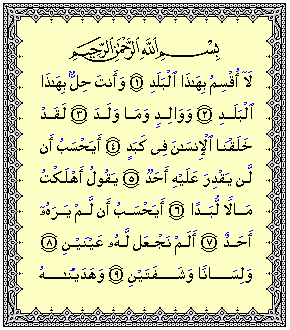 بِسْمِ ٱللَّهِ ٱلرَّحْمَٰنِ ٱلرَّحِيمِ
لَآ أُقْسِمُ بِهَٰذَا ٱلْبَلَدِ ١ وَأَنتَ حِلٌّۢ بِهَٰذَا
ٱلْبَلَدِ ٢ وَوَالِدٍ وَمَا وَلَدَ ٣ لَقَدْ
خَلَقْنَا ٱلْإِنسَٰنَ فِى كَبَدٍ ٤ أَيَحْسَبُ أَن
لَّن يَقْدِرَ عَلَيْهِ أَحَدٌ ٥ يَقُولُ أَهْلَكْتُ
مَالًا لُّبَدًا ٦ أَيَحْسَبُ أَن لَّمْ يَرَهُۥٓ
أَحَدٌ ٧ أَلَمْ نَجْعَل لَّهُۥ عَيْنَيْنِ ٨
وَلِسَانًا وَشَفَتَيْنِ ٩ وَهَدَيْنَٰهُ